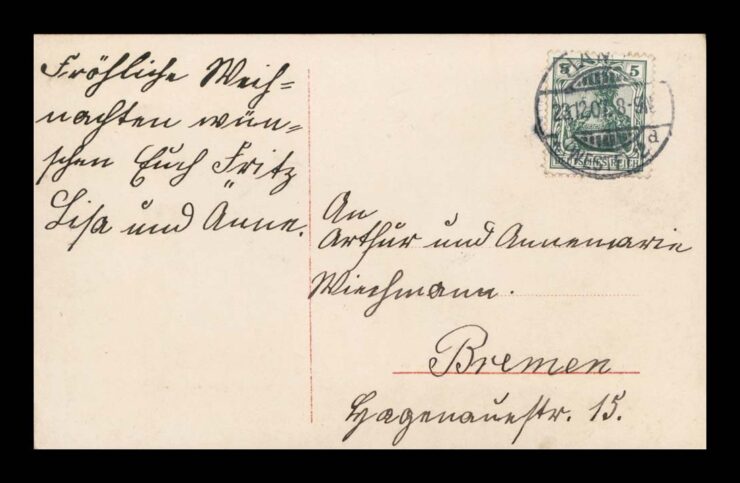 Fröhliche Weih=
nachten wün=
schen Euch Fritz
Lisa und Änne.
An
Arthur und Annemarie
Wiechmann.
Bremen
Hagenauestr. 15.
5 5
23.12.07. 8-9N
d